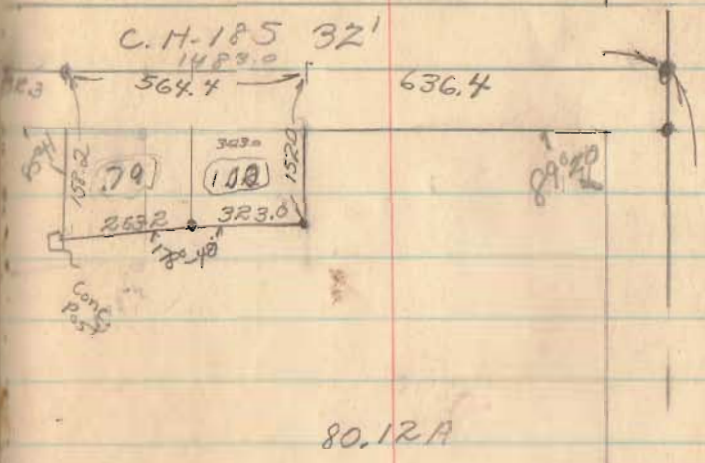 C.H-185 32'
1483.0
564.4
636.4
158.2
.79
1.02
152.0
263.2
323.0
178°-40'
Conc.
Post
80.12A